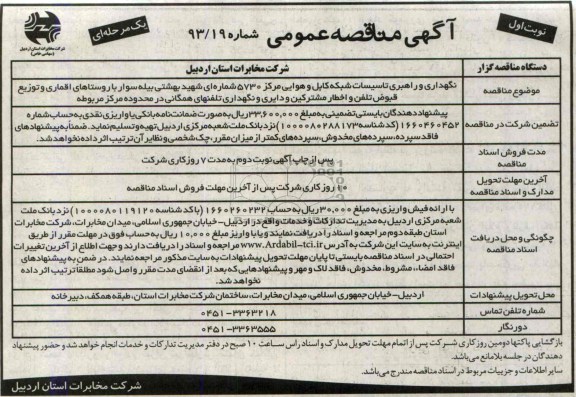 نوبت اول
آگهی مناقصه عمومی شماره ۹۳/۱۹
یک مرحله ای
شرکت مخابرات استان اردبیل
(سهامی خاص)
دستگاه مناقصه گزار
شرکت مخابرات استان اردبیل
موضوع مناقصه
نگهداری و راهبری تاسیسات شبکه کابل و هوایی مرکز ۵۷۳۰ شماره ای شهید بهشتی بیله سوار با روستاهای اقماری و توزیع
قبوض تلفن و اخطار مشترکین و دایری و نگهداری تلفنهای همگانی در محدوده مرکز مربوطه
تضمین شرکت در مناقصه
پیشنهاد دهندگان بایستی تضمینی به مبلغ ۳۳,۶۰۰,۰۰۰ ریال به صورت ضمانت نامه بانکی یا واریزی نقدی به حساب شماره
۱۶۶۰۴۶۰۴۵۲ (کد شناسه ۱۰۰۰۰۰۸۰۲۸۸۱۷۳) نزد بانک ملت شعبه مرکزی اردبیل تهیه و تسلیم نماید. ضمنا به پیشنهادهای
فاقد سپرده، سپرده های مخدوش، سپرده های کمتر از میزان مقرر، چک شخصی و نظایر آن ترتیب اثر داده نخواهد شد.
مدت فروش اسناد
مناقصه
پس از چاپ آگهی نوبت دوم به مدت ۷ روز کاری شرکت
آخرین مهلت تحویل
مدارک و اسناد مناقصه
۱۰ روز کاری شرکت پس از آخرین مهلت فروش اسناد مناقصه
چگونگی و محل دریافت
اسناد مناقصه
با ارائه فیش واریزی به مبلغ ۳۰۰,۰۰۰ ریال به حساب ۱۶۶۰۲۶۰۲۳۲ (با کد شناسه ۱۰۰۰۰۰۸۰۱۱۹۱۲۰) نزد بانک ملت
شعبه مرکزی اردبیل به مدیریت تدارکات و خدمات واقع در اردبیل - خیابان جمهوری اسلامی، میدان مخابرات، شرکت مخابرات
استان طبقه دوم مراجعه و اسناد را دریافت نمایند و یا با واریز مبلغ ۱۰,۰۰۰ ریال به حساب فوق در مهلت مقرر از طریق
اینترنت به سایت این شرکت به آدرس www.Ardabil-tci.ir مراجعه و اسناد را دریافت دارند و جهت اطلاع از آخرین تغییرات
احتمالی در اسناد مناقصه بایستی تا پایان مهلت تحویل پیشنهادات به سایت مذکور مراجعه نمایند. در ضمن به پیشنهادهای
فاقد امضاء، مشروط، مخدوش، فاقد لاک و مهر و پیشنهادهایی که بعد از انقضای مدت مقرر واصل شود مطلقا ترتیب اثر داده
نخواهد شد.
محل تحویل پیشنهادات
اردبیل - خیابان جمهوری اسلامی، میدان مخابرات، ساختمان شرکت مخابرات استان، طبقه همکف، دبیرخانه
شماره تلفن تماس
۰۴۵۱-۳۳۶۳۲۱۸
دورنگار
۰۴۵۱-۳۳۶۳۵۵۵
بازگشایی پاکتها دومین روز کاری شرکت پس از اتمام مهلت تحویل مدارک و اسناد راس ساعت ۱۰ صبح در دفتر مدیریت تدارکات و خدمات انجام خواهد شد و حضور پیشنهاد
دهندگان در جلسه بلامانع می باشد.
سایر اطلاعات و جزییات مربوط در اسناد مناقصه مندرج می باشد.
شرکت مخابرات استان اردبیل